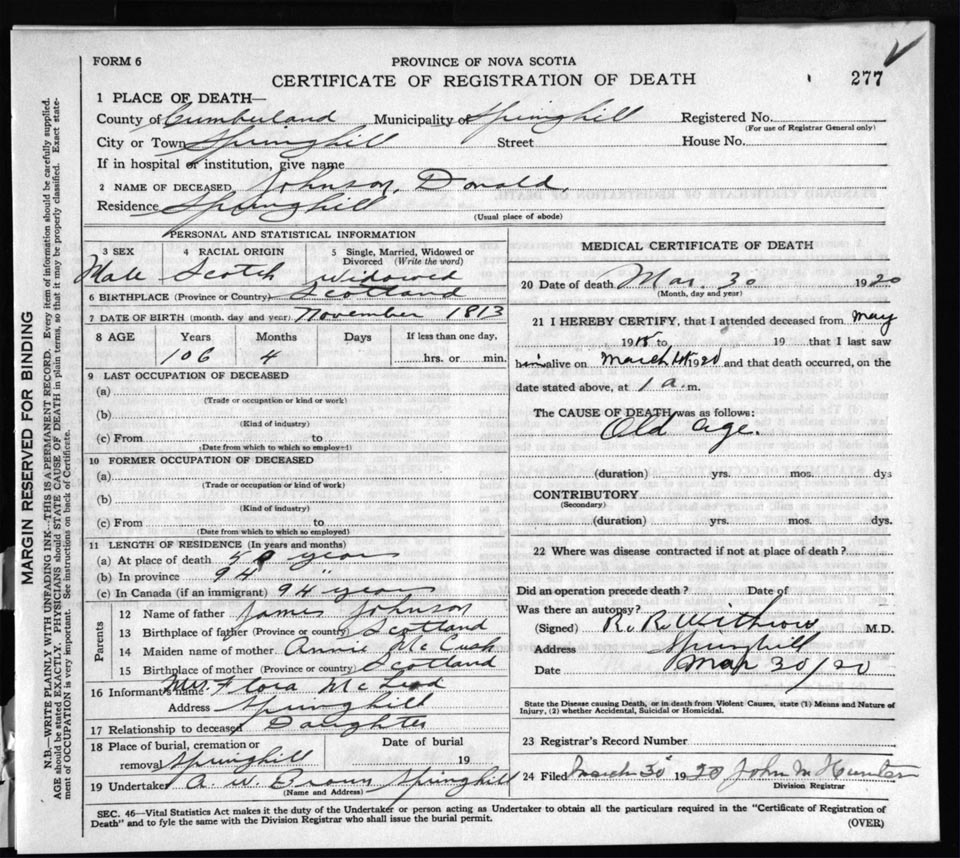 FORM 6
PROVINCE OF NOVA SCOTIA
CERTIFICATE OF REGISTRATION OF DEATH
277
1 PLACE OF DEATH—
County of Cumberland Municipality of Springhill Registered No.
(For use of Registrar General only)
City or Town Springhill Street House No.
If in hospital or institution, give name
2 NAME OF DECEASED Johnson, Donald.
Residence Springhill
(Usual place of abode)
PERSONAL AND STATISTICAL INFORMATION
3 SEX 4 RACIAL ORIGIN 5 Single, Married, Widowed or Divorced (Write the word)
Male Scotch Widowed
6 BIRTHPLACE (Province or Country) Scotland
7 DATE OF BIRTH (month, day and year) November 1813
8 AGE Years Months Days If less than one day,
106 4 hrs. or min.
9 LAST OCCUPATION OF DECEASED
(a)
(Trade or occupation or kind or work)
(b)
(Kind of industry)
(c) From to
(Date from which to which so employed)
10 FORMER OCCUPATION OF DECEASED
(a)
(Trade or occupation or kind of work)
(b)
(Kind of industry)
(c) From to
(Date from which to which so employed)
11 LENGTH OF RESIDENCE (In years and months)
(a) At place of death years
(b) In province 94 "
(c) In Canada (if an immigrant) 94 years
Parents
12 Name of father James Johnson
13 Birthplace of father (Province or country) Scotland
14 Maiden name of mother Annie McCush
15 Birthplace of mother (Province or country) Scotland
16 Informant's name Mrs. Flora McLeod
Address Springhill
17 Relationship to deceased Daughter
18 Place of burial, cremation or removal Springhill Date of burial 19
19 Undertaker A. W. Brown Springhill
(Name and Address)
MEDICAL CERTIFICATE OF DEATH
20 Date of death Mar. 30 1920
(Month, day and year)
21 I HEREBY CERTIFY, that I attended deceased from May
1918 to 19 that I last saw
him alive on March 1920 and that death occurred, on the
date stated above, at 1 a.m.
The CAUSE OF DEATH was as follows:
Old age.
(duration) yrs. mos. dys
CONTRIBUTORY
(Secondary)
(duration) yrs. mos. dys.
22 Where was disease contracted if not at place of death?
Did an operation precede death? Date of
Was there an autopsy?
(Signed) R. R. Withrow M.D.
Address Springhill
Date Mar 30/20
State the Disease causing Death, or in death from Violent Causes, state (1) Means and Nature of
Injury, (2) whether Accidental, Suicidal or Homicidal.
23 Registrar's Record Number
24 Filed March 30 1920 John M Hunter
Division Registrar
SEC. 46—Vital Statistics Act makes it the duty of the Undertaker or person acting as Undertaker to obtain all the particulars required in the "Certificate of Registration of
Death" and to fyle the same with the Division Registrar who shall issue the burial permit.
(OVER)
MARGIN RESERVED FOR BINDING
N.B.—WRITE PLAINLY WITH UNFADING INK—THIS IS A PERMANENT RECORD. Every item of information should be carefully supplied.
AGE should be stated EXACTLY. PHYSICIANS should STATE CAUSE OF DEATH in plain terms, so that it may be properly classified. Exact state-
ment of OCCUPATION is very important. See instructions on back of Certificate.